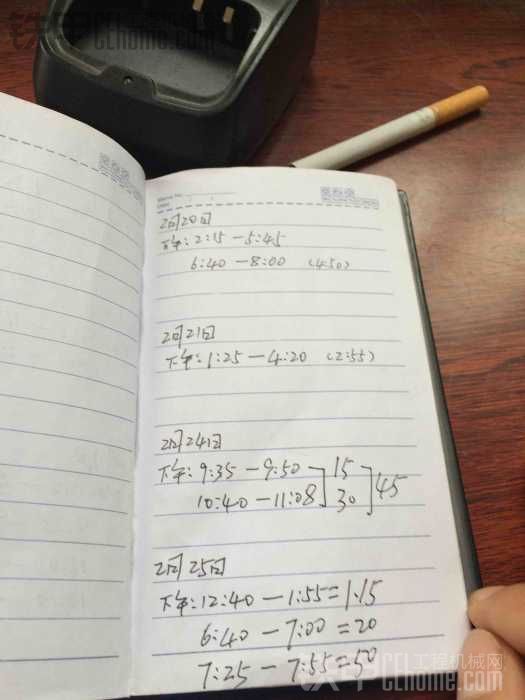 铁甲 CEhome.com
Memo No.
Date
2月20日
下午:2:15-5:45
6:40-8:00 (4:50)
2月21日
下午:1:25-4:20 (2:55)
2月24日
下午:9:35-9:50 15
10:40-11:08 30 45
2月25日
下午:12:40-1:55=1.15
6:40-7:00=20
7:25-7:55=50
铁甲 CEhome.com 工程机械网